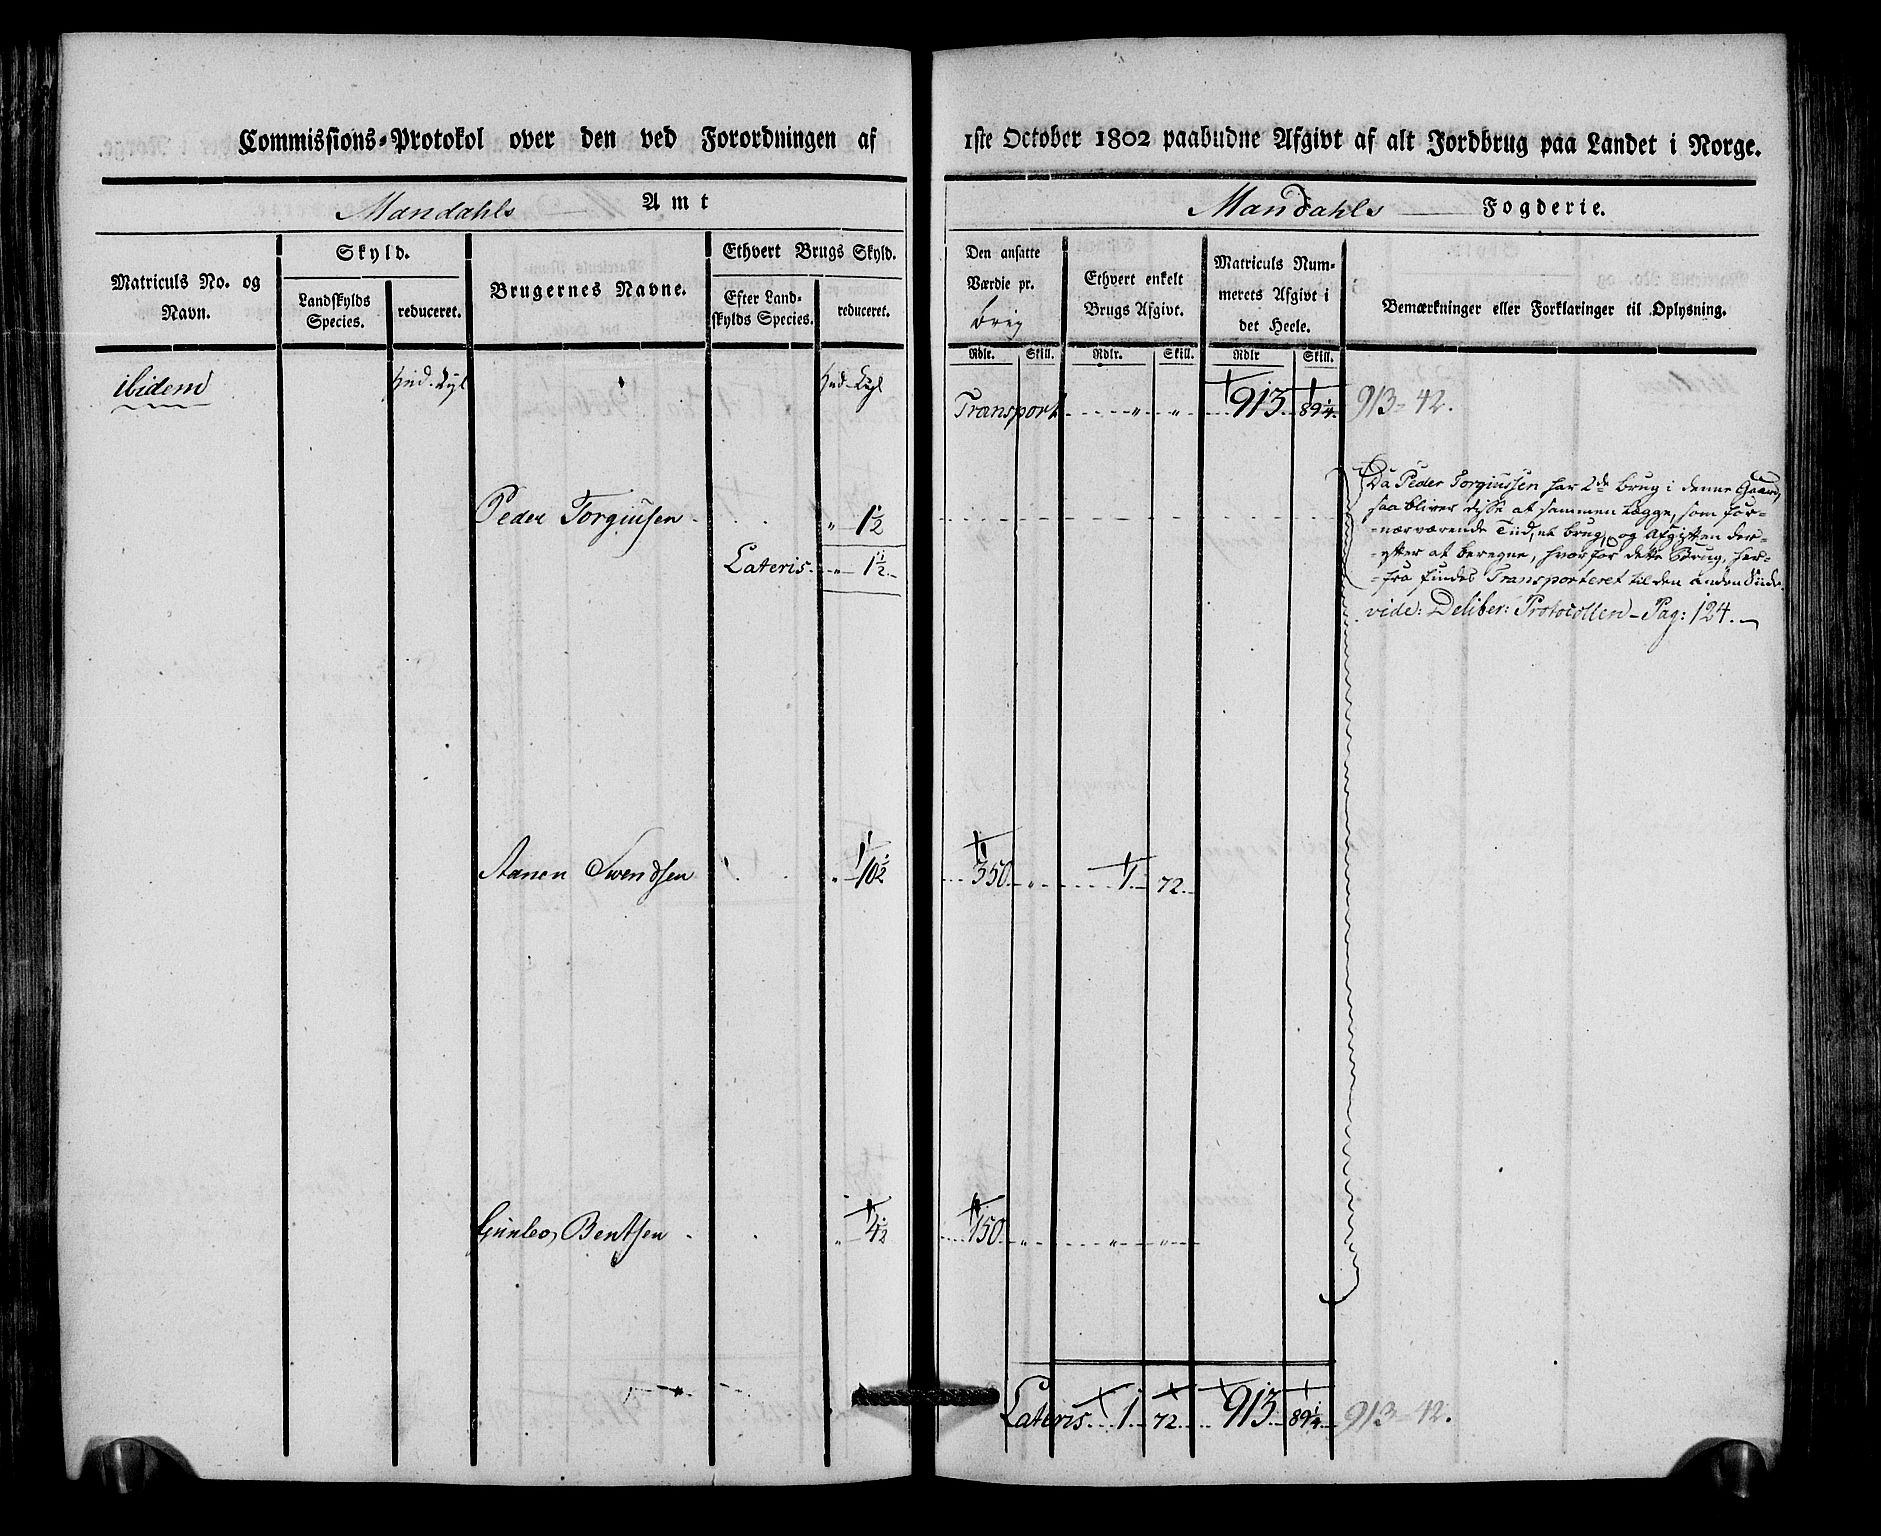 Commissions-Protokol over den ved Forordningen af 1ste October 1802 paabudne Afgivt af alt Jordbrug paa Landet i Norge.
Mandahls Amt
Mandahls Fogderie.
Matriculs No. og Navn.
Skyld.
Landskylds Species.
reduceret.
Brugernes Navne.
Ethvert Brugs Skyld.
Efter Landskylds Species.
reduceret.
Den ansatte Værdie pr.
Ethvert enkelt Brugs Afgivt.
Matriculs Nummerets Afgivt i det Heele.
Bemærkninger eller Forklaringer til Oplysning.
Rdlr. Skill. Rdlr. Skill. Rdlr Skill.
ibidem
Transport " " 913 89 1/4 913 = 42.
Peder Torgiusen " 1 1/2
Lateris " 1 1/2
Da Peder Torgiussen har 2de brug i denne Gaard,
saa bliver disse at sammen lægge, som for-
-nærværende Tiid, et brug, og Afgiften der-
-efter at beregne, hvorfor dette Brug, her-
-fra findes Transporteret til den anden Side
vide: Deliber: Protocollen - Pag: 124.
Aanen Swendsen " 10 1/2 350 " 1 72
Gunleo, Bentsen " 4 1/2 150 " " "
Lateris 1 72 913 89 1/4 913 = 42.